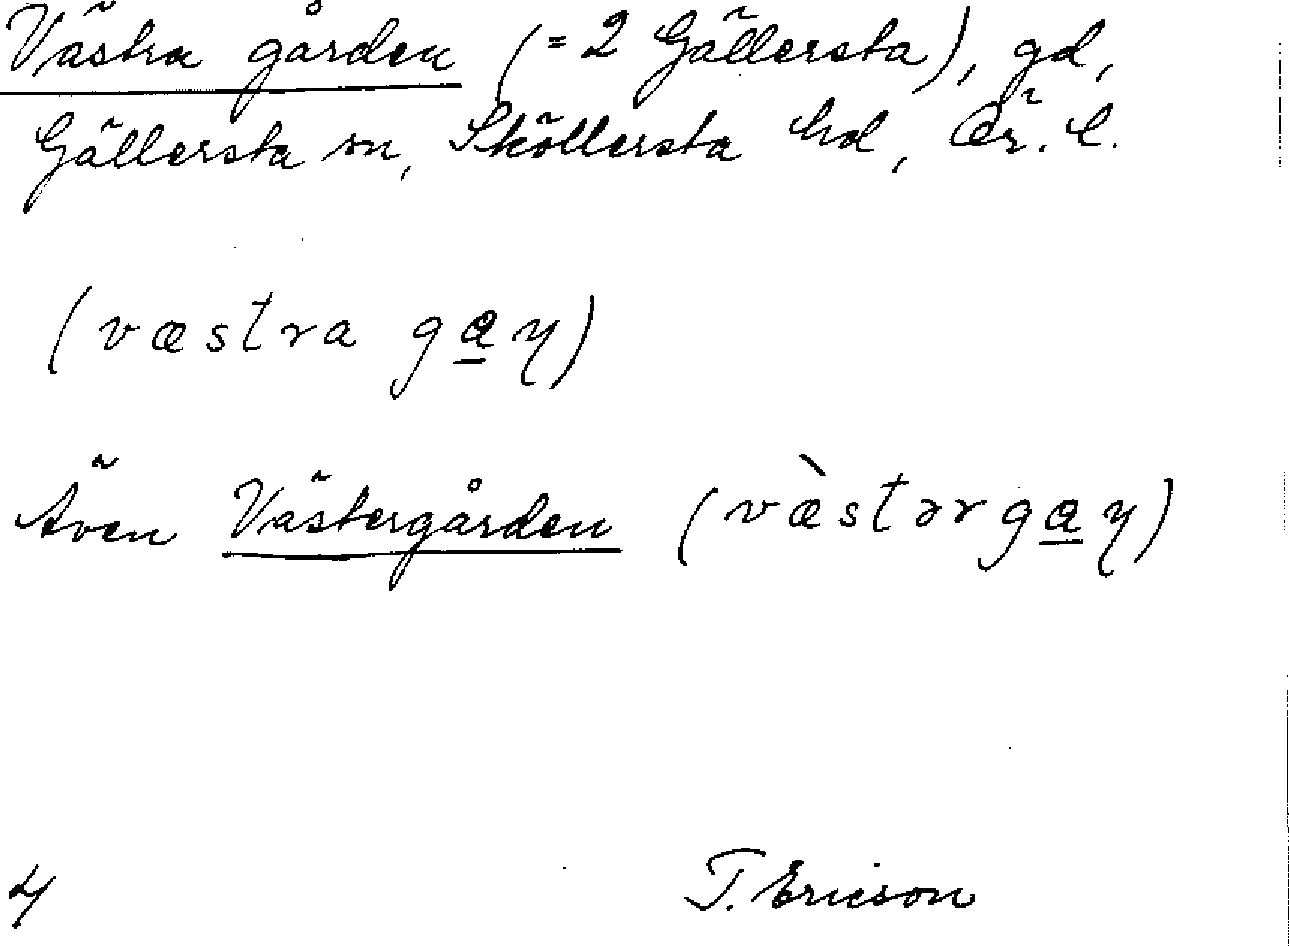 Västra gården (= 2 Gällersta), gd,
Gällersta sn, Sköllersta hd, Ör. l.
(væstra ga̲ɳ)
Även Västergården (væ̀stərga̲ɳ)
4 T. Ericson